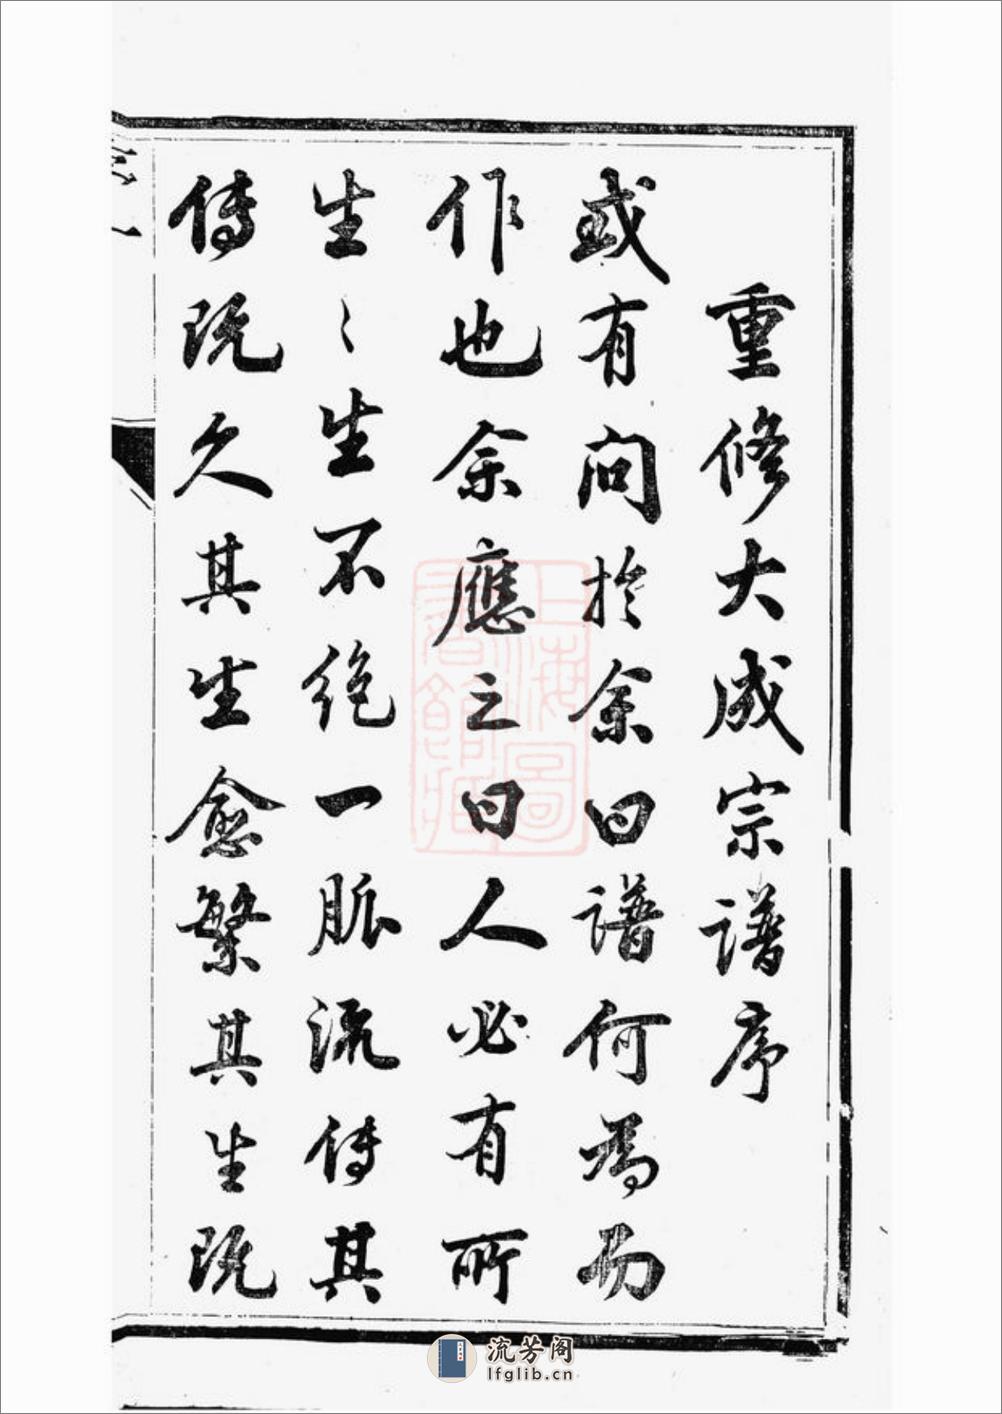 重修大成宗譜序
或有問於余曰譜何爲而
作也余應之曰人必有所
生〻生不絶一脈流傳其
傳既久其生愈繁其生既
上海圖書館藏
流芳阁
lfglib.cn